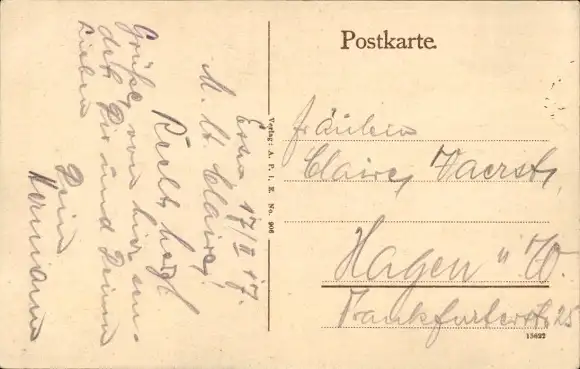 Postkarte.
Essen 17/II 17.
M. lb. Claire!
Recht herzl
Grüße, von hier sen-
det Dir und Deinen
Lieben
Dein
Hermann
Verlag: A. P. i. E. No. 906
Fräulein
Claire Vaerst,
Hagen i/W.
Frankfurterstr. 25
13622